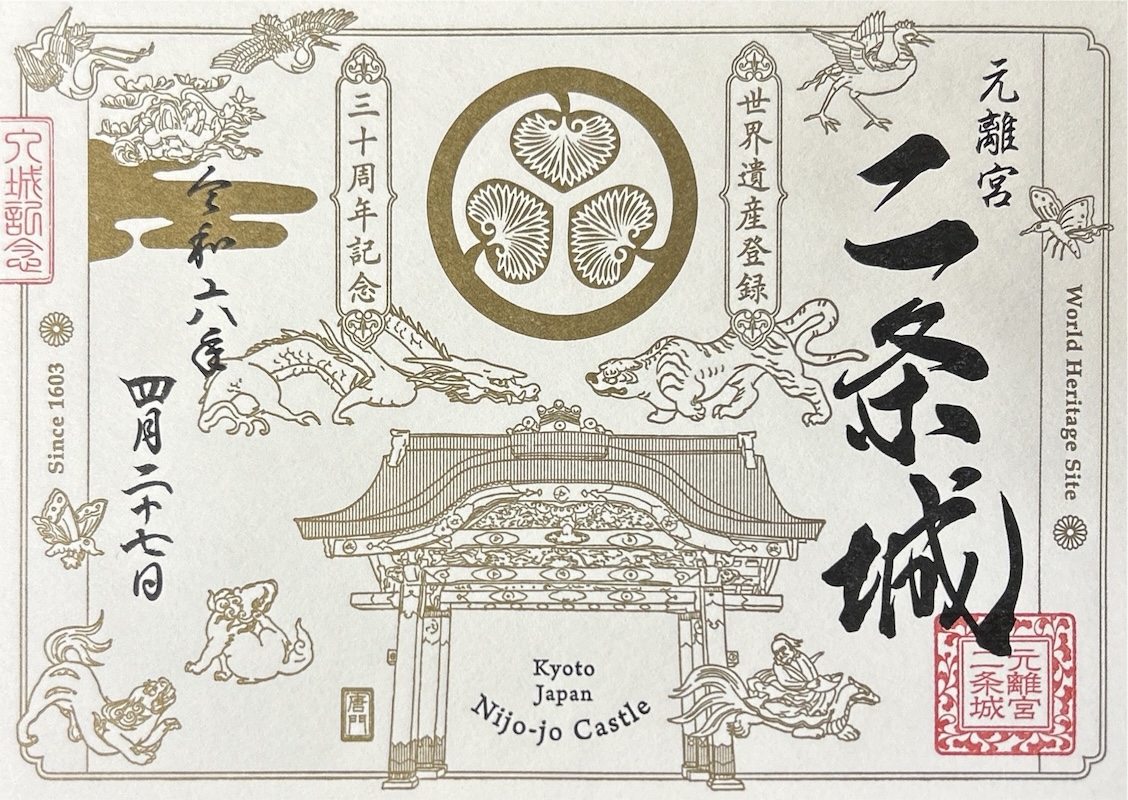 元離宮
二条城
World Heritage Site
世界遺産登録
三十周年記念
令和六年
四月二十七日
Since 1603
入城記念
唐門
Kyoto
Japan
Nijo-jo Castle
元離宮
二条城